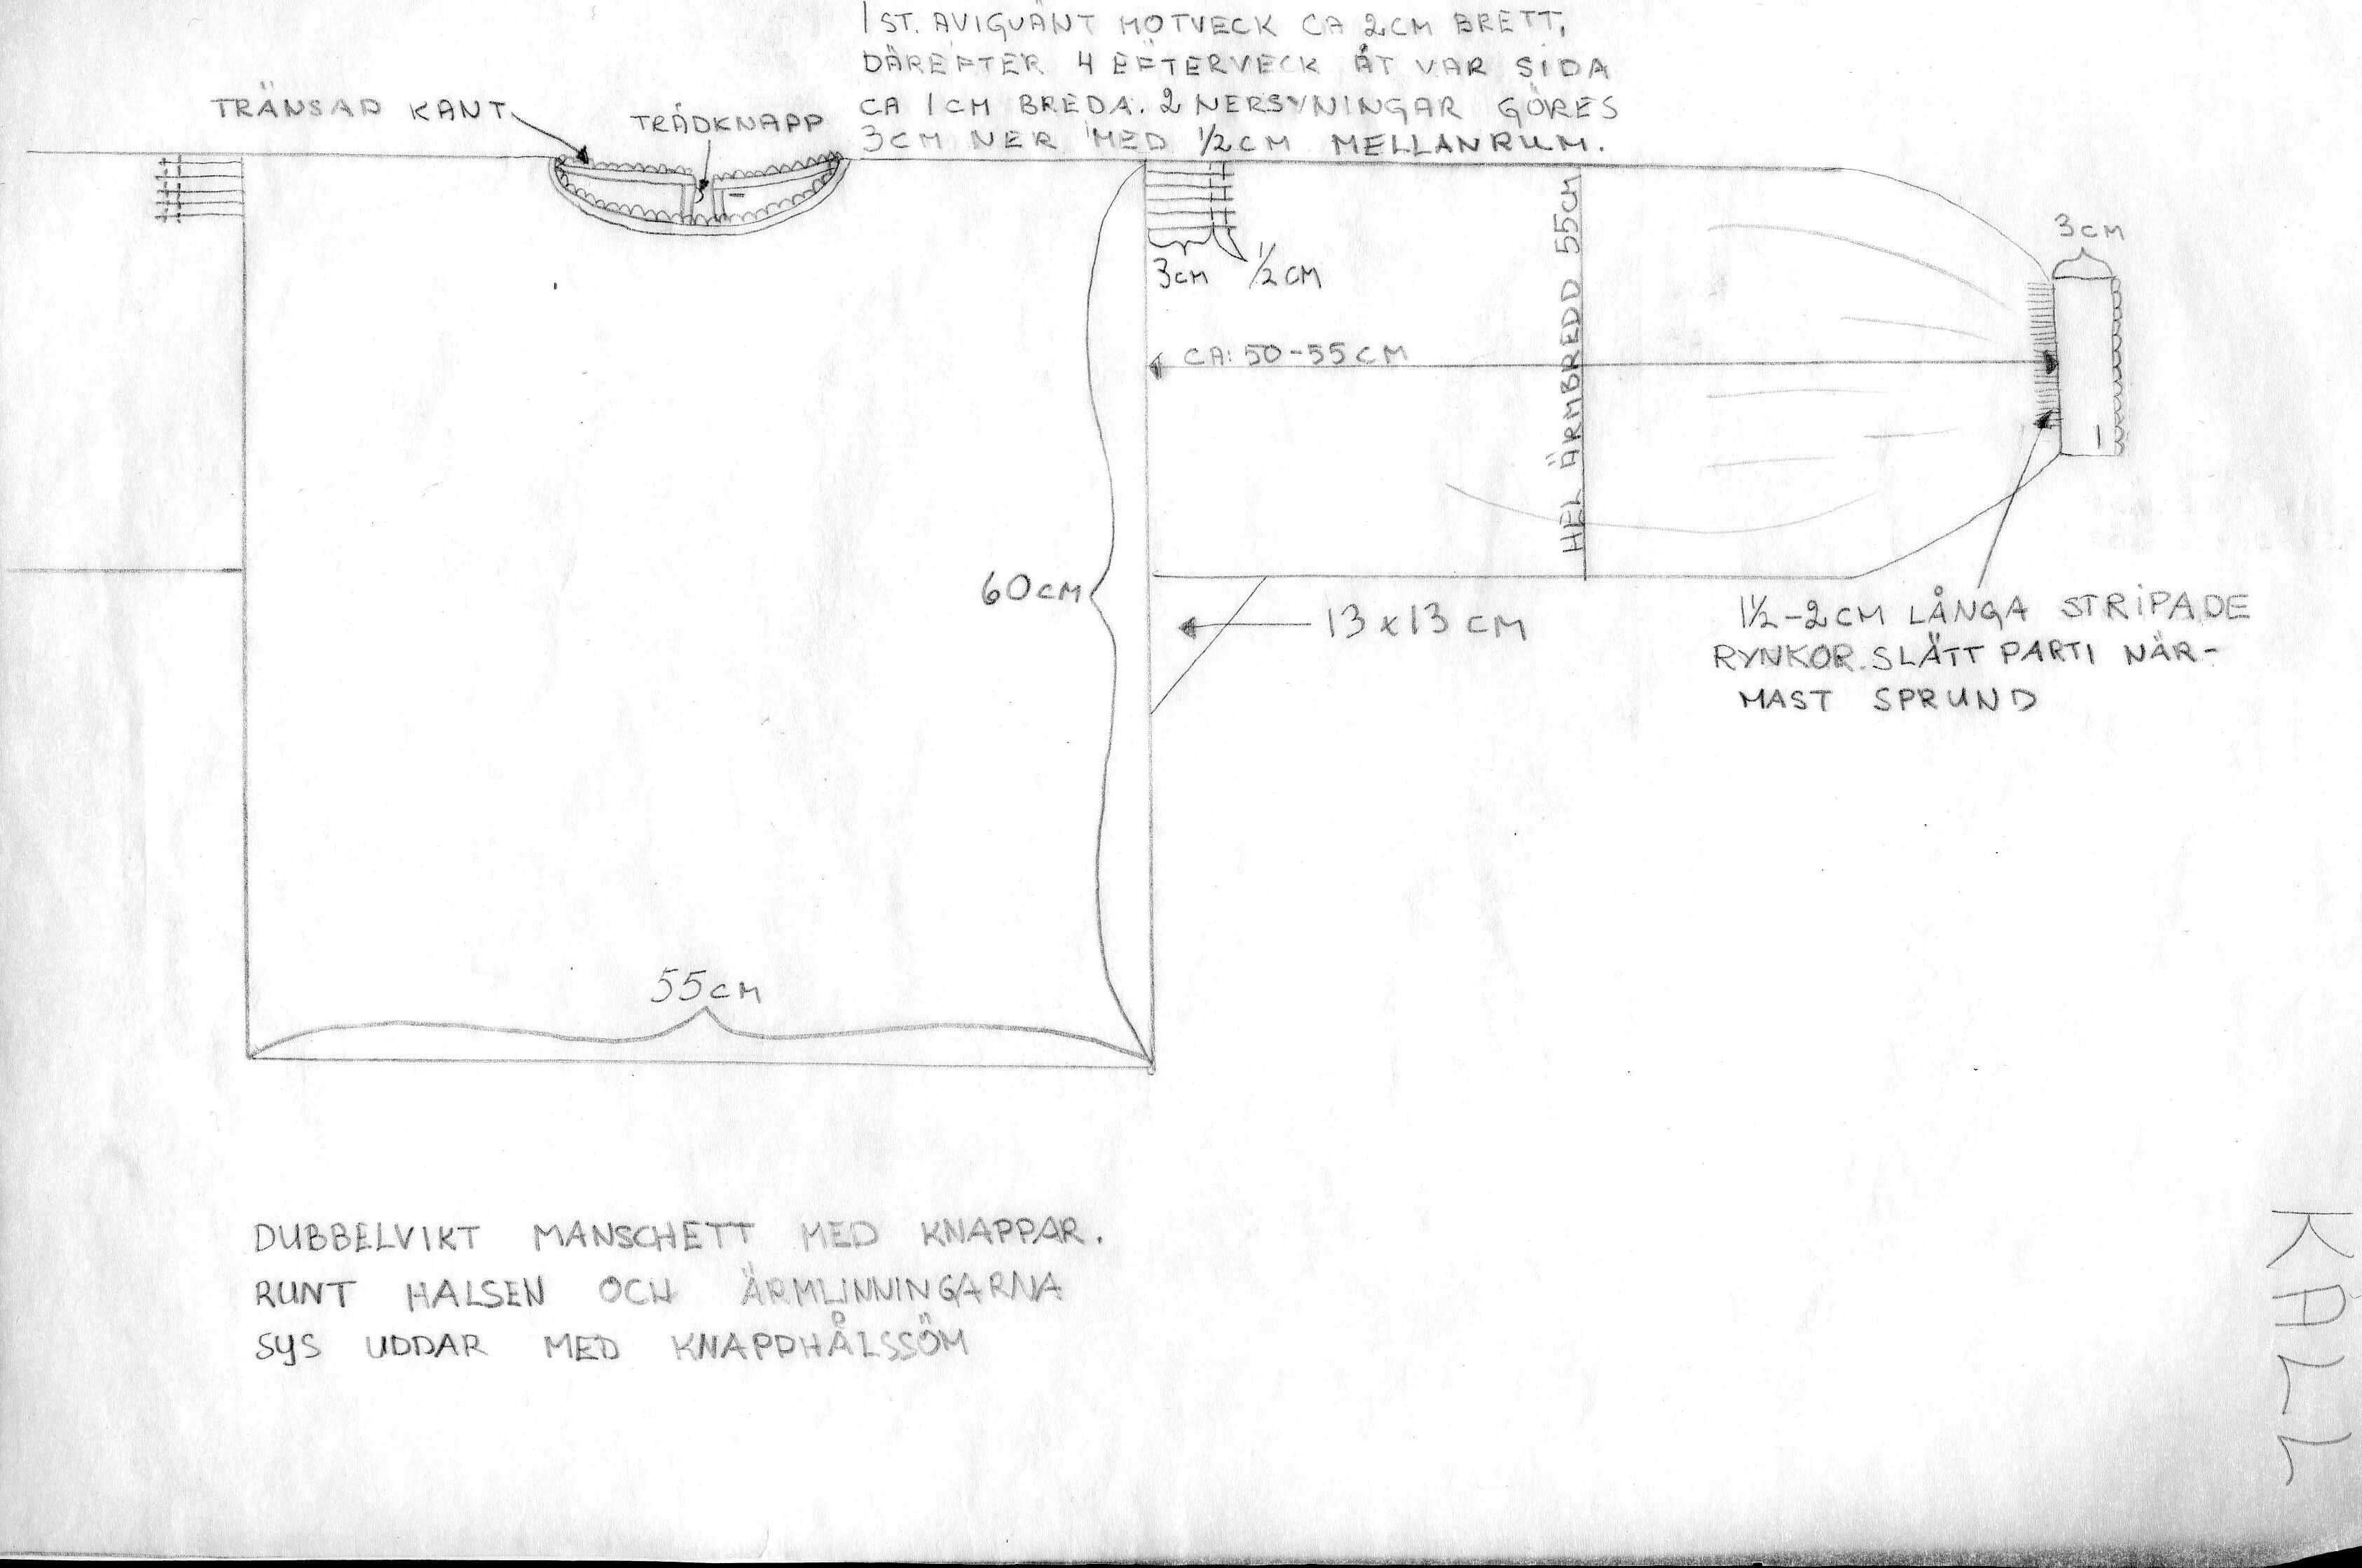 1 ST. AVIGVÄNT MOTVECK CA 2 CM BRETT,
DÄREFTER 4 EFTERVECK ÅT VAR SIDA
CA 1 CM BREDA. 2 NERSYNINGAR GÖRES
3 CM NER MED 1/2 CM MELLANRUM.
TRÄNSAD KANT
TRÅDKNAPP
3 CM
1/2 CM
HEL ÄRMBREDD 55 CM
3 CM
CA: 50-55 CM
60 CM
13 x 13 CM
1 1/2-2 CM LÅNGA STRIPADE
RYNKOR. SLÄTT PARTI NÄR-
MAST SPRUND
55 CM
DUBBELVIKT MANSCHETT MED KNAPPAR.
RUNT HALSEN OCH ÄRMLINNINGARNA
SYS UDDAR MED KNAPPHÅLSSÖM
KALL